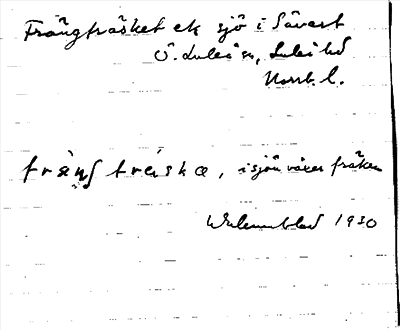 Frängträsket ek sjö i Sävast
Ö. Luleå sn, Luleå tod
Norrb. l.
fräng träska, i sjön växer fräken
Wulmnblad 1930